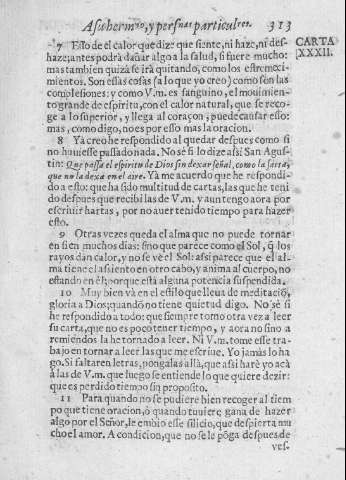 A su hermano, y personas particulares. 313
CARTA
XXXII.
7 Esso de el calor que dize que siente, ni haze, ni des-
haze; antes podrà dañar algo a la salud, si fuere mucho:
mas tambien quizà se irà quitando, como los estremeci-
mientos. Son essas cosas (a lo que yo creo) como son las
complesiones: y como V.m. es sanguino, el mouimien-
to grande de espiritu, con el calor natural, que se reco-
ge a lo superior, y llega al coraçon, puede causar esso:
mas, como digo, no es por esso mas la oracion.
8 Ya creo he respondido al quedar despues como si
no huuiesse passado nada. No sè si lo dize assi San Agus-
tin: Que passa el espiritu de Dios sin dexar señal, como la saeta,
que no la dexa en el aire. Ya me acuerdo que he respondi-
do a esto: que ha sido multitud de cartas, las que he teni-
do despues que recibi las de V.m. y aun tengo aora por
escriuir hartas, por no auer tenido tiempo para hazer
esto.
9 Otras vezes queda el alma que no puede tornar
en si en muchos dias: sino que parece como el Sol, q̃ los
rayos dan calor, y no se vè el Sol: assi parece que el al-
ma tiene el assiento en otro cabo, y anima al cuerpo, no
estando en èl; porque està alguna potencia suspendida.
10 Muy bien và en el estilo que lleua de meditaciõ,
gloria a Dios; quando no tiene quietud digo. No sè si
he respondido a todo: que siempre torno otra vez a leer
su carta, que no es poco tener tiempo, y aora no sino a
remiendos la he tornado a leer. Ni V.m. tome esse tra-
bajo en tornar a leer las que me escriue. Yo jamàs lo ha-
go. Si faltaren letras, pongalas allà, que assi harè yo acà
à las de V.m. que luego se entiende lo que quiere dezir:
que es perdido tiempo sin proposito.
11 Para quando no se pudiere bien recoger al tiem
po que tiene oracion, ò quando tuuiere gana de hazer
algo por el Señor, le embio esse silicio, que despierta mu
cho el amor. A condicion, que no se le põga despues de
ves-